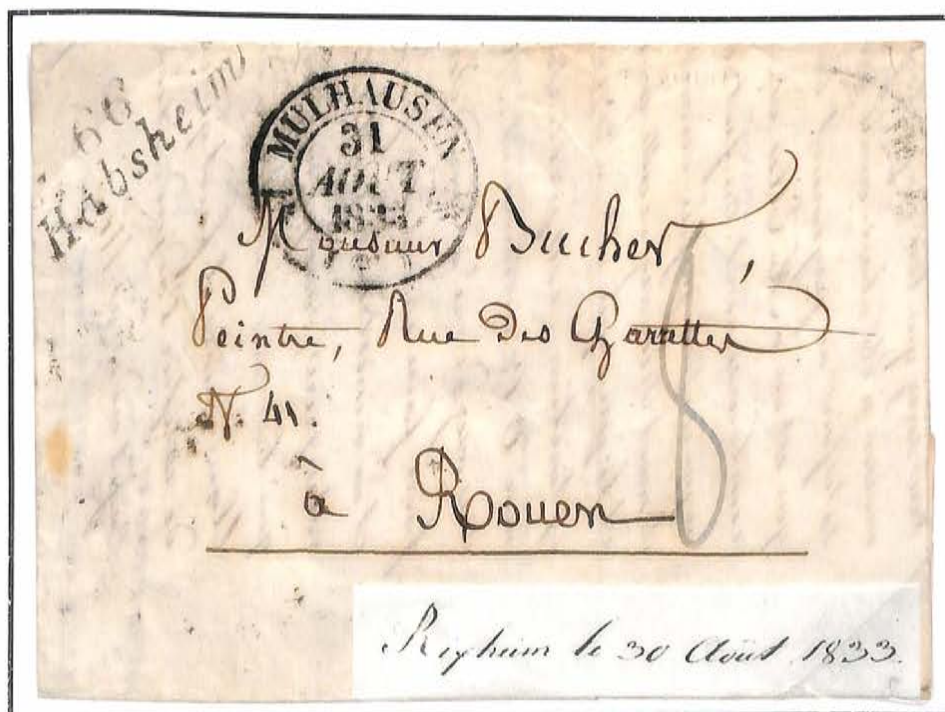 66
Habsheim
MULHAUSEN
31
AOUT
1833
Monsieur Bucher,
Peintre, Rue des Charrettes
N. 41.
à Rouen
8
Rixheim le 30 Août 1833.